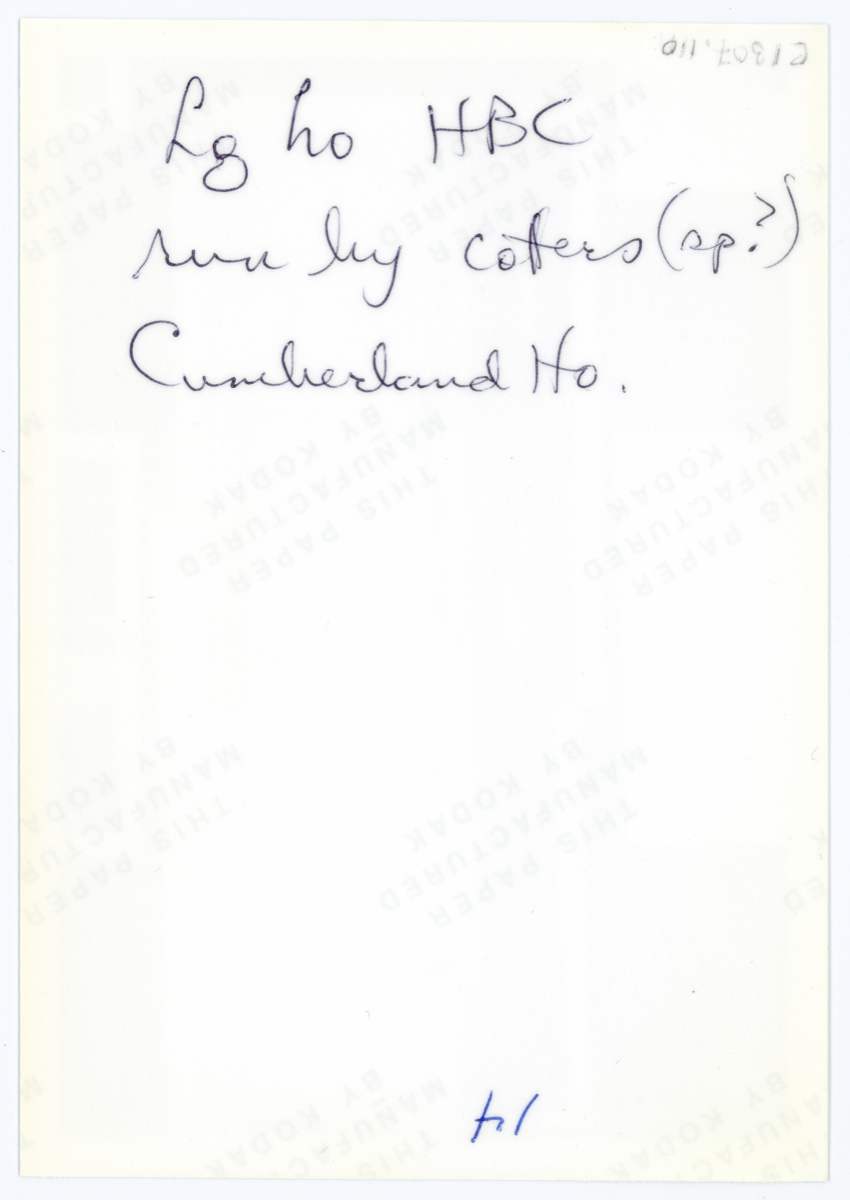 C1307.110
Lg ho HBC
run by coters (sp?)
Cumberland Ho.
THIS PAPER
MANUFACTURED
BY KODAK